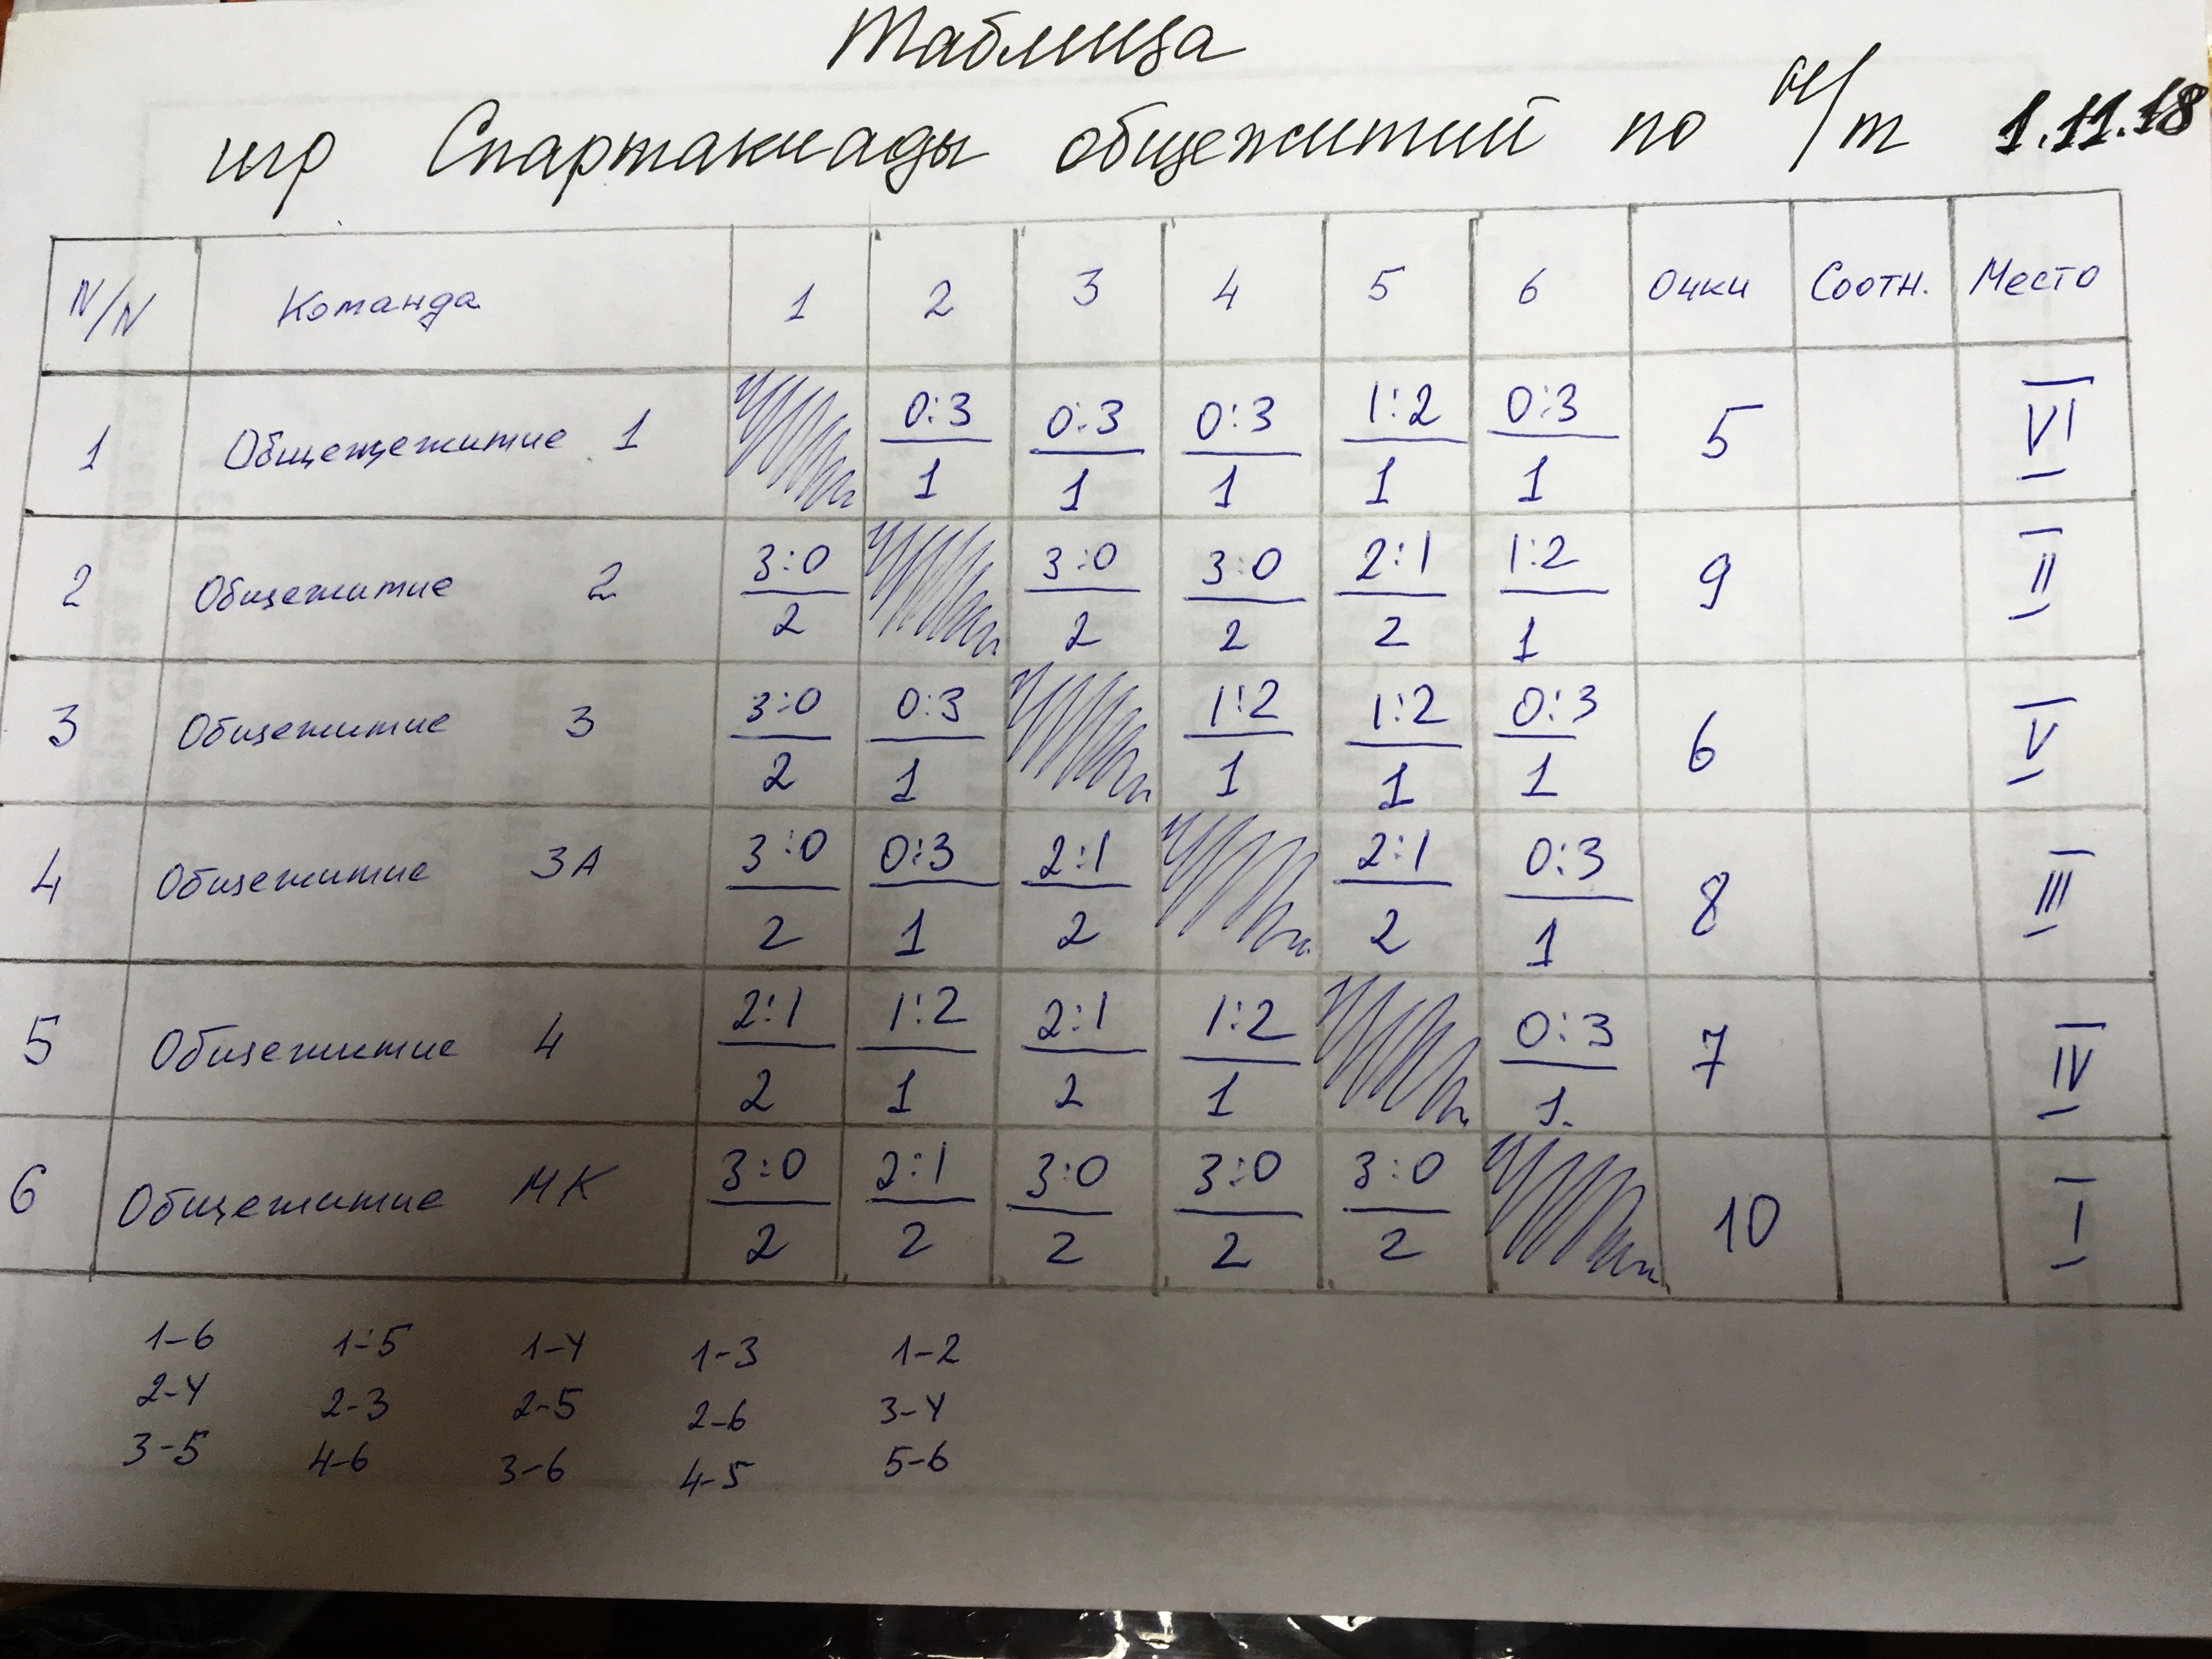 Таблица
игр Спартакиады общежитий по н/т 1.11.18
N/N Команда 1 2 3 4 5 6 Очки Соотн. Место
1 Общещежитие 1 0:3 0:3 0:3 1:2 0:3 5 VI
1 1 1 1 1
2 Общежитие 2 3:0 3:0 3:0 2:1 1:2 9 II
2 2 2 2 1
3 Общежитие 3 3:0 0:3 1:2 1:2 0:3 6 V
2 1 1 1 1
4 Общежитие 3А 3:0 0:3 2:1 2:1 0:3 8 III
2 1 2 2 1
5 Общежитие 4 2:1 1:2 2:1 1:2 0:3 7 IV
2 1 2 1 1.
6 Общежитие МК 3:0 2:1 3:0 3:0 3:0 10 I
2 2 2 2 2
1-6 1:5 1-4 1-3 1-2
2-4 2-3 2-5 2-6 3-4
3-5 4-6 3-6 4-5 5-6